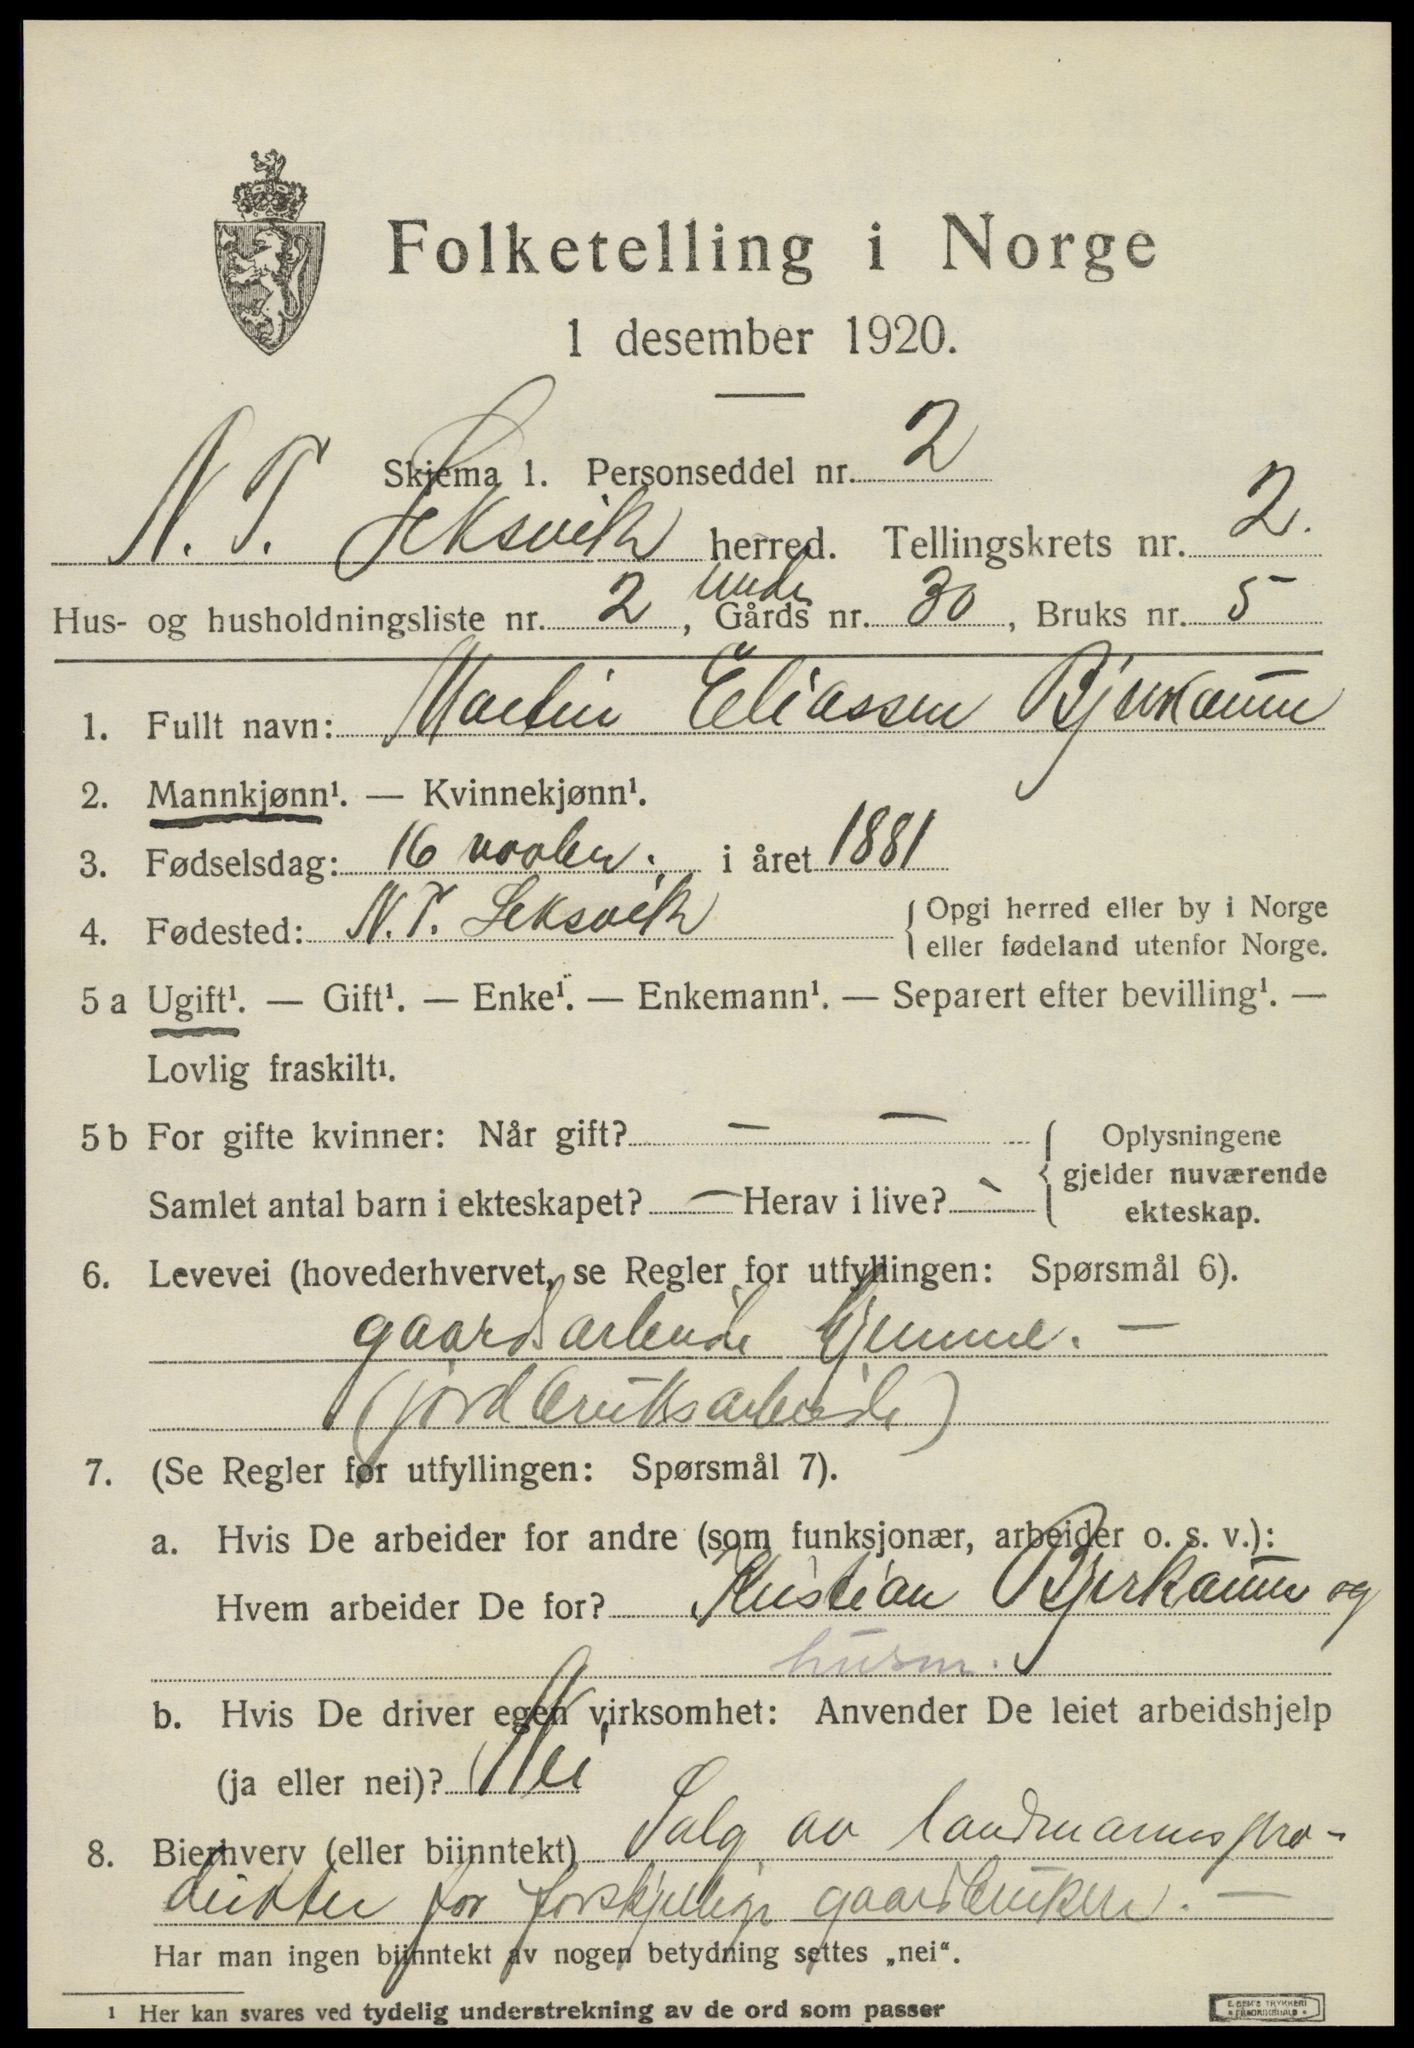 Folketelling i Norge
1 desember 1920.
Skjema 1. Personseddel nr. 2
N. T. Leksvik herred. Tellingskrets nr. 2.
Hus- og husholdningsliste nr. 2, Gårds nr. 30, Bruks nr. 5
1. Fullt navn: Martin Eliassen
2. Mannkjønn¹. — Kvinnekjønn¹.
3. Fødselsdag: 16 i året 1881
4. Fødested: N.T. Leksvik
{ Opgi herred eller by i Norge
eller fødeland utenfor Norge.
5 a Ugift¹. — Gift¹. — Enke¹. — Enkemann¹. — Separert efter bevilling¹. —
Lovlig fraskilt¹.
5 b For gifte kvinner: Når gift? — —
Samlet antal barn i ekteskapet? — Herav i live? -
{ Oplysningene
gjelder nuværende
ekteskap.
6. Levevei (hovederhvervet, se Regler for utfyllingen: Spørsmål 6).
gaardsarbeide hjemme. —
(jordbruksarbeide)
7. (Se Regler for utfyllingen: Spørsmål 7).
a. Hvis De arbeider for andre (som funksjonær, arbeider o. s. v.):
Hvem arbeider De for? Kristian og
husm.
b. Hvis De driver egen virksomhet: Anvender De leiet arbeidshjelp
(ja eller nei)? Nei
8. Bierhverv (eller biinntekt) Salg av landmannspro-
dukter for forskjellige gaardbrukere. —
Har man ingen biinntekt av nogen betydning settes „nei“.
¹ Her kan svares ved tydelig understrekning av de ord som passer